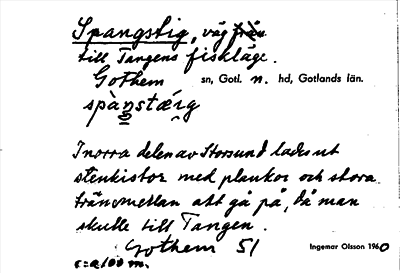 Spangstig, väg från
till Tangens fiskläge.
Gothem sn, Gotl. n. hd, Gotlands län.
spànstǽi̯g
I norra delen av Storsund lades ut
stenkistor med plankor och stora
träd mellan att gå på, då man
skulle till Tangen.
Gothem 51
Ingemar Olsson 1960
c:a 100 m.